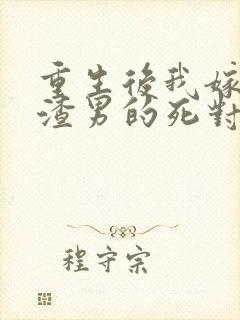 重生後我嫁
渣男的死對
程守宗